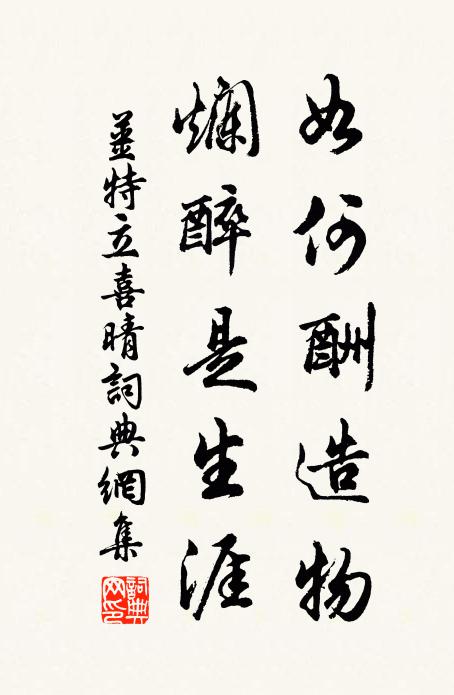 如何酬造物
爛醉是生涯
薑特立喜晴詞典網集
詞典
网印